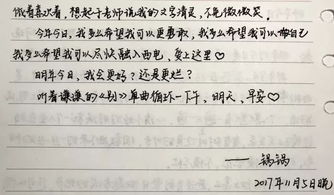 看着喜欢着，想起子老师说我的文字清灵，不免微微笑。
今年今日，我多么希望我可以更勇敢，我多么希望我可以做自己
我多么希望我可以尽快融入西电，爱上这里♡
明年今日，我会更好？还是更烂？
听着谦谦的《别》单曲循环一下午，明天，早安♡
—— 锅锅
2017年11月5日晚